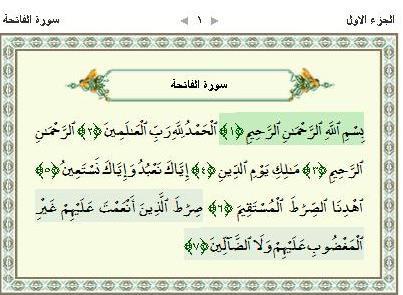 الجزء الاول ١ سورة الفاتحة
سورة الفاتحة
بِسْمِ ٱللَّهِ ٱلرَّحْمَٰنِ ٱلرَّحِيمِ ﴿١﴾ ٱلْحَمْدُ لِلَّهِ رَبِّ ٱلْعَٰلَمِينَ ﴿٢﴾ ٱلرَّحْمَٰنِ
ٱلرَّحِيمِ ﴿٣﴾ مَٰلِكِ يَوْمِ ٱلدِّينِ ﴿٤﴾ إِيَّاكَ نَعْبُدُ وَإِيَّاكَ نَسْتَعِينُ ﴿٥﴾
ٱهْدِنَا ٱلصِّرَٰطَ ٱلْمُسْتَقِيمَ ﴿٦﴾ صِرَٰطَ ٱلَّذِينَ أَنْعَمْتَ عَلَيْهِمْ غَيْرِ
ٱلْمَغْضُوبِ عَلَيْهِمْ وَلَا ٱلضَّآلِّينَ ﴿٧﴾